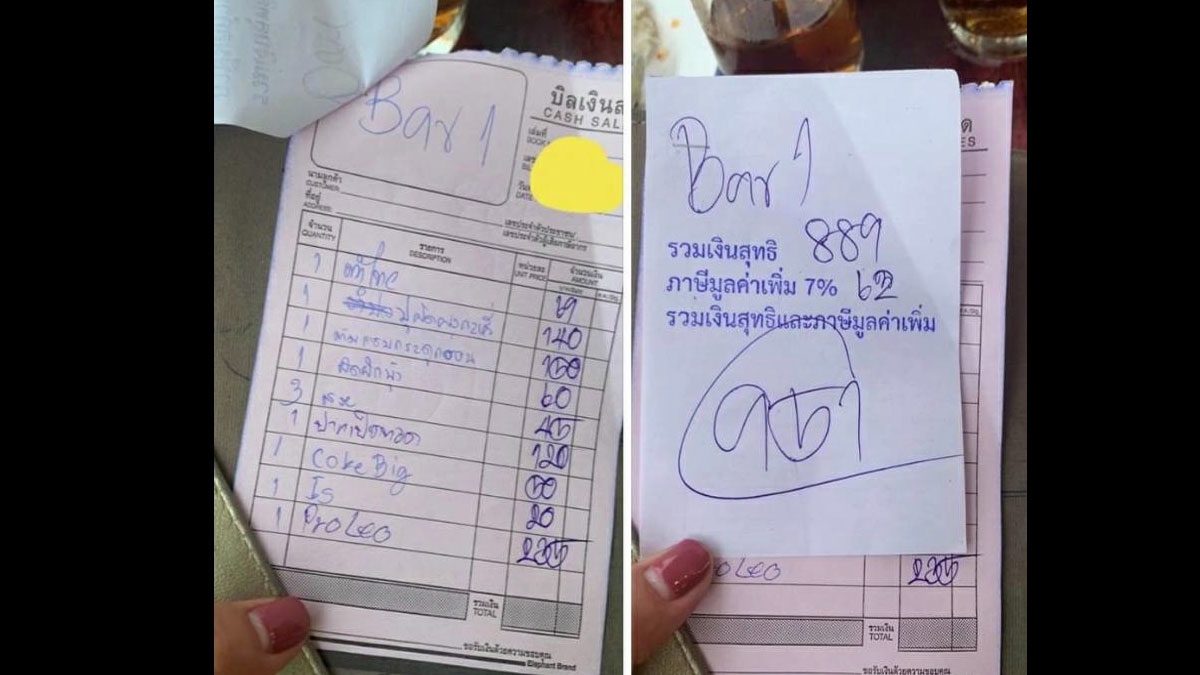 Bar 1
บิลเงินส
CASH SAL
เล่มที่
นามลูกค้า
CUSTOMER
ที่อยู่
ADDRESS
วันที่
DATE
เลขประจำตัวประชาชน/
เลขประจำตัวผู้เสียภาษีอากร
จำนวน
QUANTITY
รายการ
DESCRIPTION
หน่วยละ
UNIT PRICE
จำนวนเงิน
AMOUNT
1
1 140
1
1 60
3 45
1 120
1 Coke Big
1 Is 20
1 Pro Leo 235
รวมเงิน
TOTAL
ขอรับเงินด้วยความขอบคุณ
Elephant Brand
ด
ES
Bar 1
รวมเงินสุทธิ 889
ภาษีมูลค่าเพิ่ม 7% 62
รวมเงินสุทธิและภาษีมูลค่าเพิ่ม
951
o Leo 235
รวมเงิน
TOTAL
ขอรับเงินด้วยความขอบคุณ